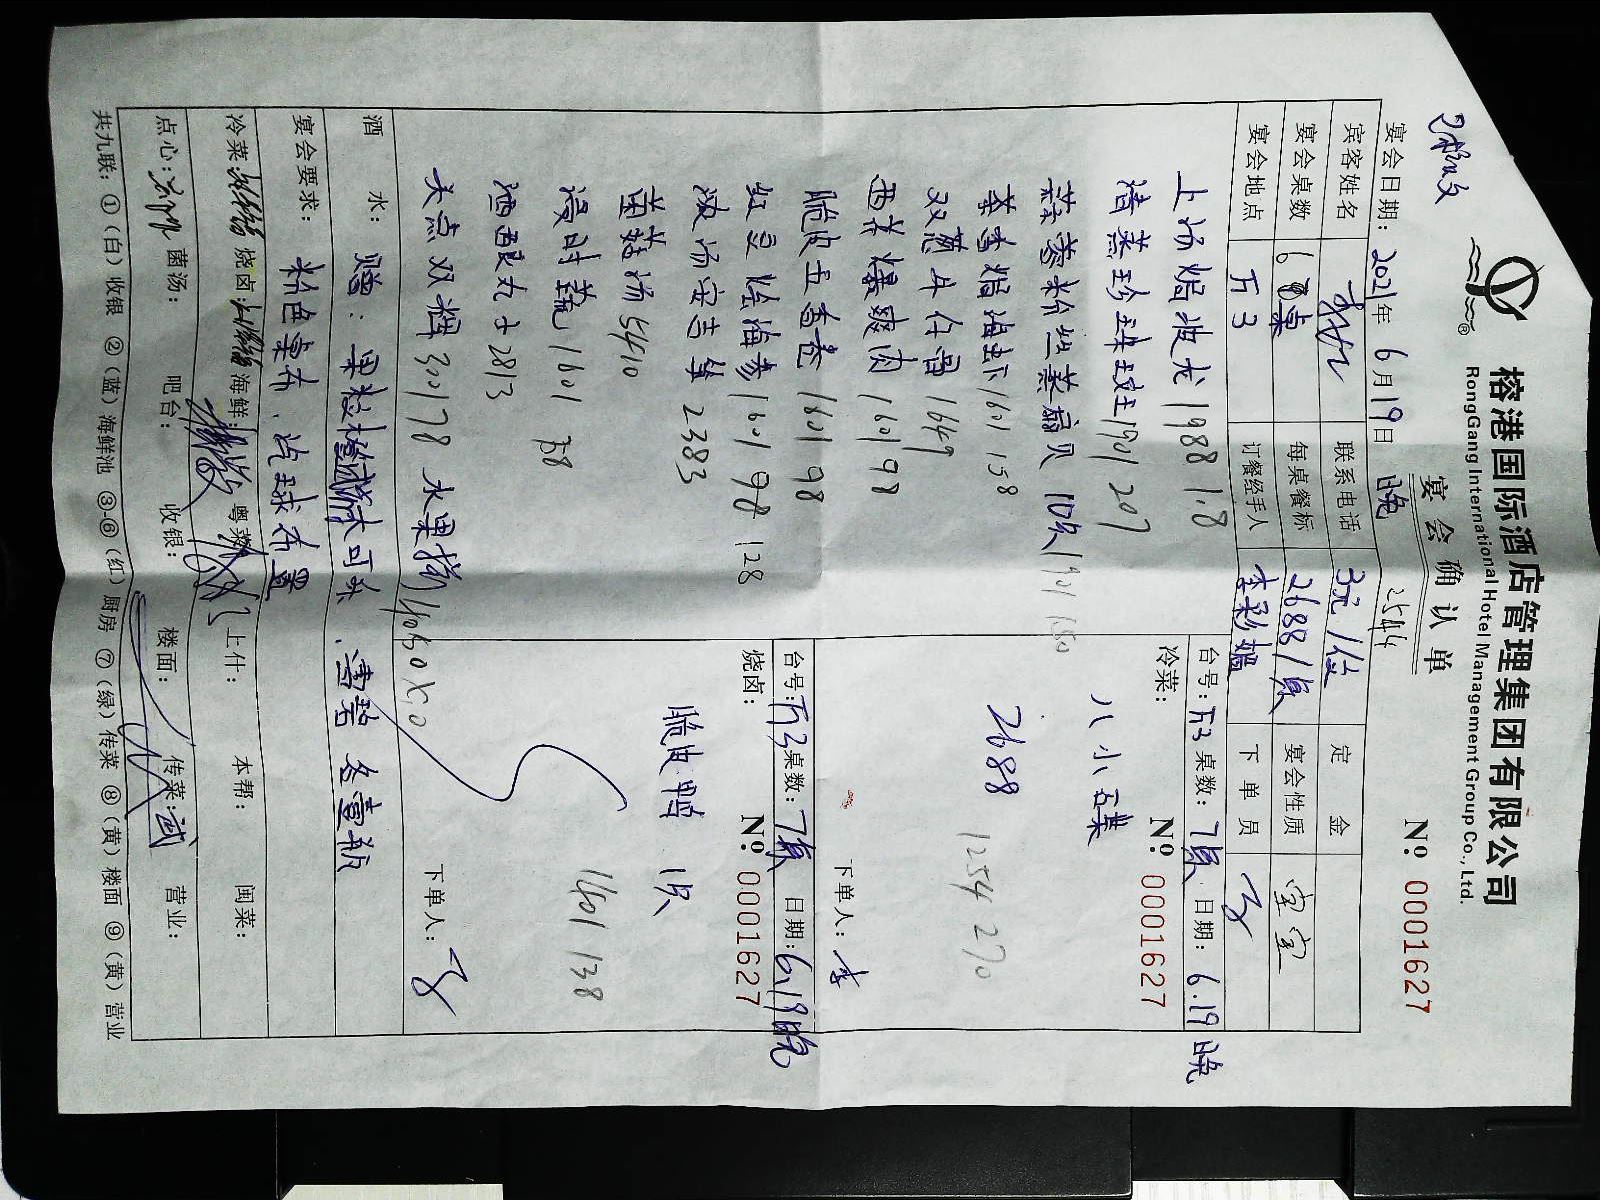 榕港国际酒店管理集团有限公司
RongGang International Hotel Management Group Co., Ltd.
宴会确认单
№: 0001627
宴会日期: 2021年 6月19日 晚 2544
宾客姓名 联系电话 3元/位 定金
宴会桌数 6 桌 每桌餐标 2688/桌 宴会性质 宝宝
宴会地点 万3 订餐经手人 李彩 下单员
上汤焗波龙 1988 118
清蒸珍珠 1901 207
蒜蓉粉丝蒸扇贝 10只 1901 150
茶香焗海虾 1601 158
双葱牛仔骨 1649
西芹爆爽肉 1601 98
脆皮五香卷 1601 98
红豆烩海参 1601 98 128
2383
菌菇汤 5410
时蔬 1601 38
酒酿丸子 2813
美点双辉 300178 水果拼
台号: 万3 桌数: 7桌 日期: 6.19晚
冷菜: №: 0001627
八小石碟
2688
1254 270
下单人: 李
台号: 万3 桌数: 7桌 日期: 6.19晚
烧卤: №: 0001627
脆皮鸭 1只
1401 138
下单人:
酒水: 赠: 果粒橙 可乐、雪碧 各壹瓶
宴会要求: 粉色桌布、气球布置
冷菜: 烧卤: 海鲜: 粤菜: 上什: 本帮: 闽菜:
点心: 菌汤: 吧台: 收银: 楼面: 传菜: 武 营业:
共九联: ①(白)收银 ②(蓝)海鲜池 ③⑥(红)厨房 ⑦(绿)传菜 ⑧(黄)楼面 ⑨(黄)营业